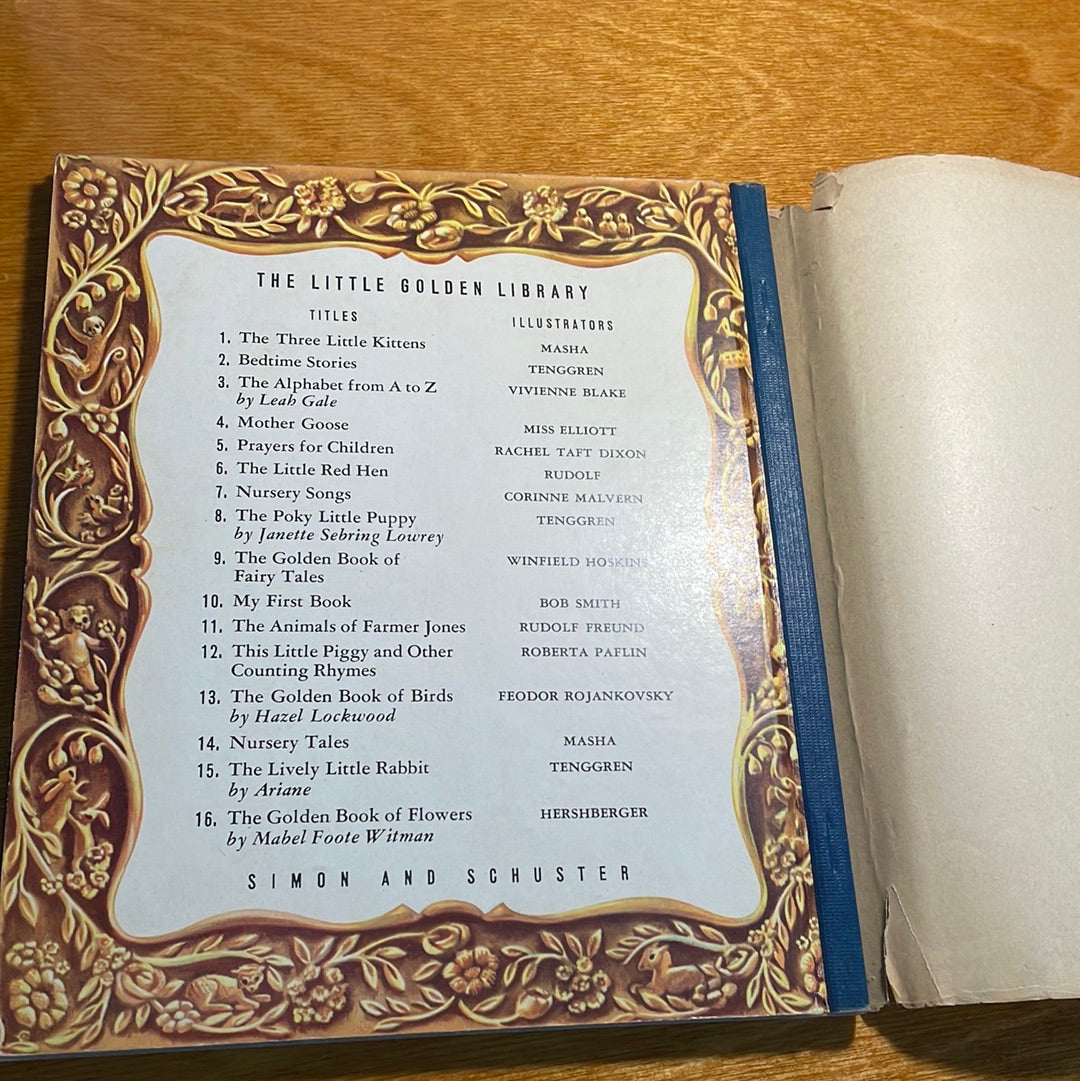 THE LITTLE GOLDEN LIBRARY
TITLES ILLUSTRATORS
1. The Three Little Kittens MASHA
2. Bedtime Stories TENGGREN
3. The Alphabet from A to Z VIVIENNE BLAKE
by Leah Gale
4. Mother Goose MISS ELLIOTT
5. Prayers for Children RACHEL TAFT DIXON
6. The Little Red Hen RUDOLF
7. Nursery Songs CORINNE MALVERN
8. The Poky Little Puppy TENGGREN
by Janette Sebring Lowrey
9. The Golden Book of WINFIELD HOSKINS
Fairy Tales
10. My First Book BOB SMITH
11. The Animals of Farmer Jones RUDOLF FREUND
12. This Little Piggy and Other ROBERTA PAFLIN
Counting Rhymes
13. The Golden Book of Birds FEODOR ROJANKOVSKY
by Hazel Lockwood
14. Nursery Tales MASHA
15. The Lively Little Rabbit TENGGREN
by Ariane
16. The Golden Book of Flowers HERSHBERGER
by Mabel Foote Witman
SIMON AND SCHUSTER